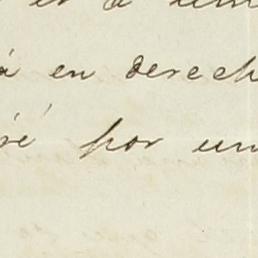 á en derech
ré por un